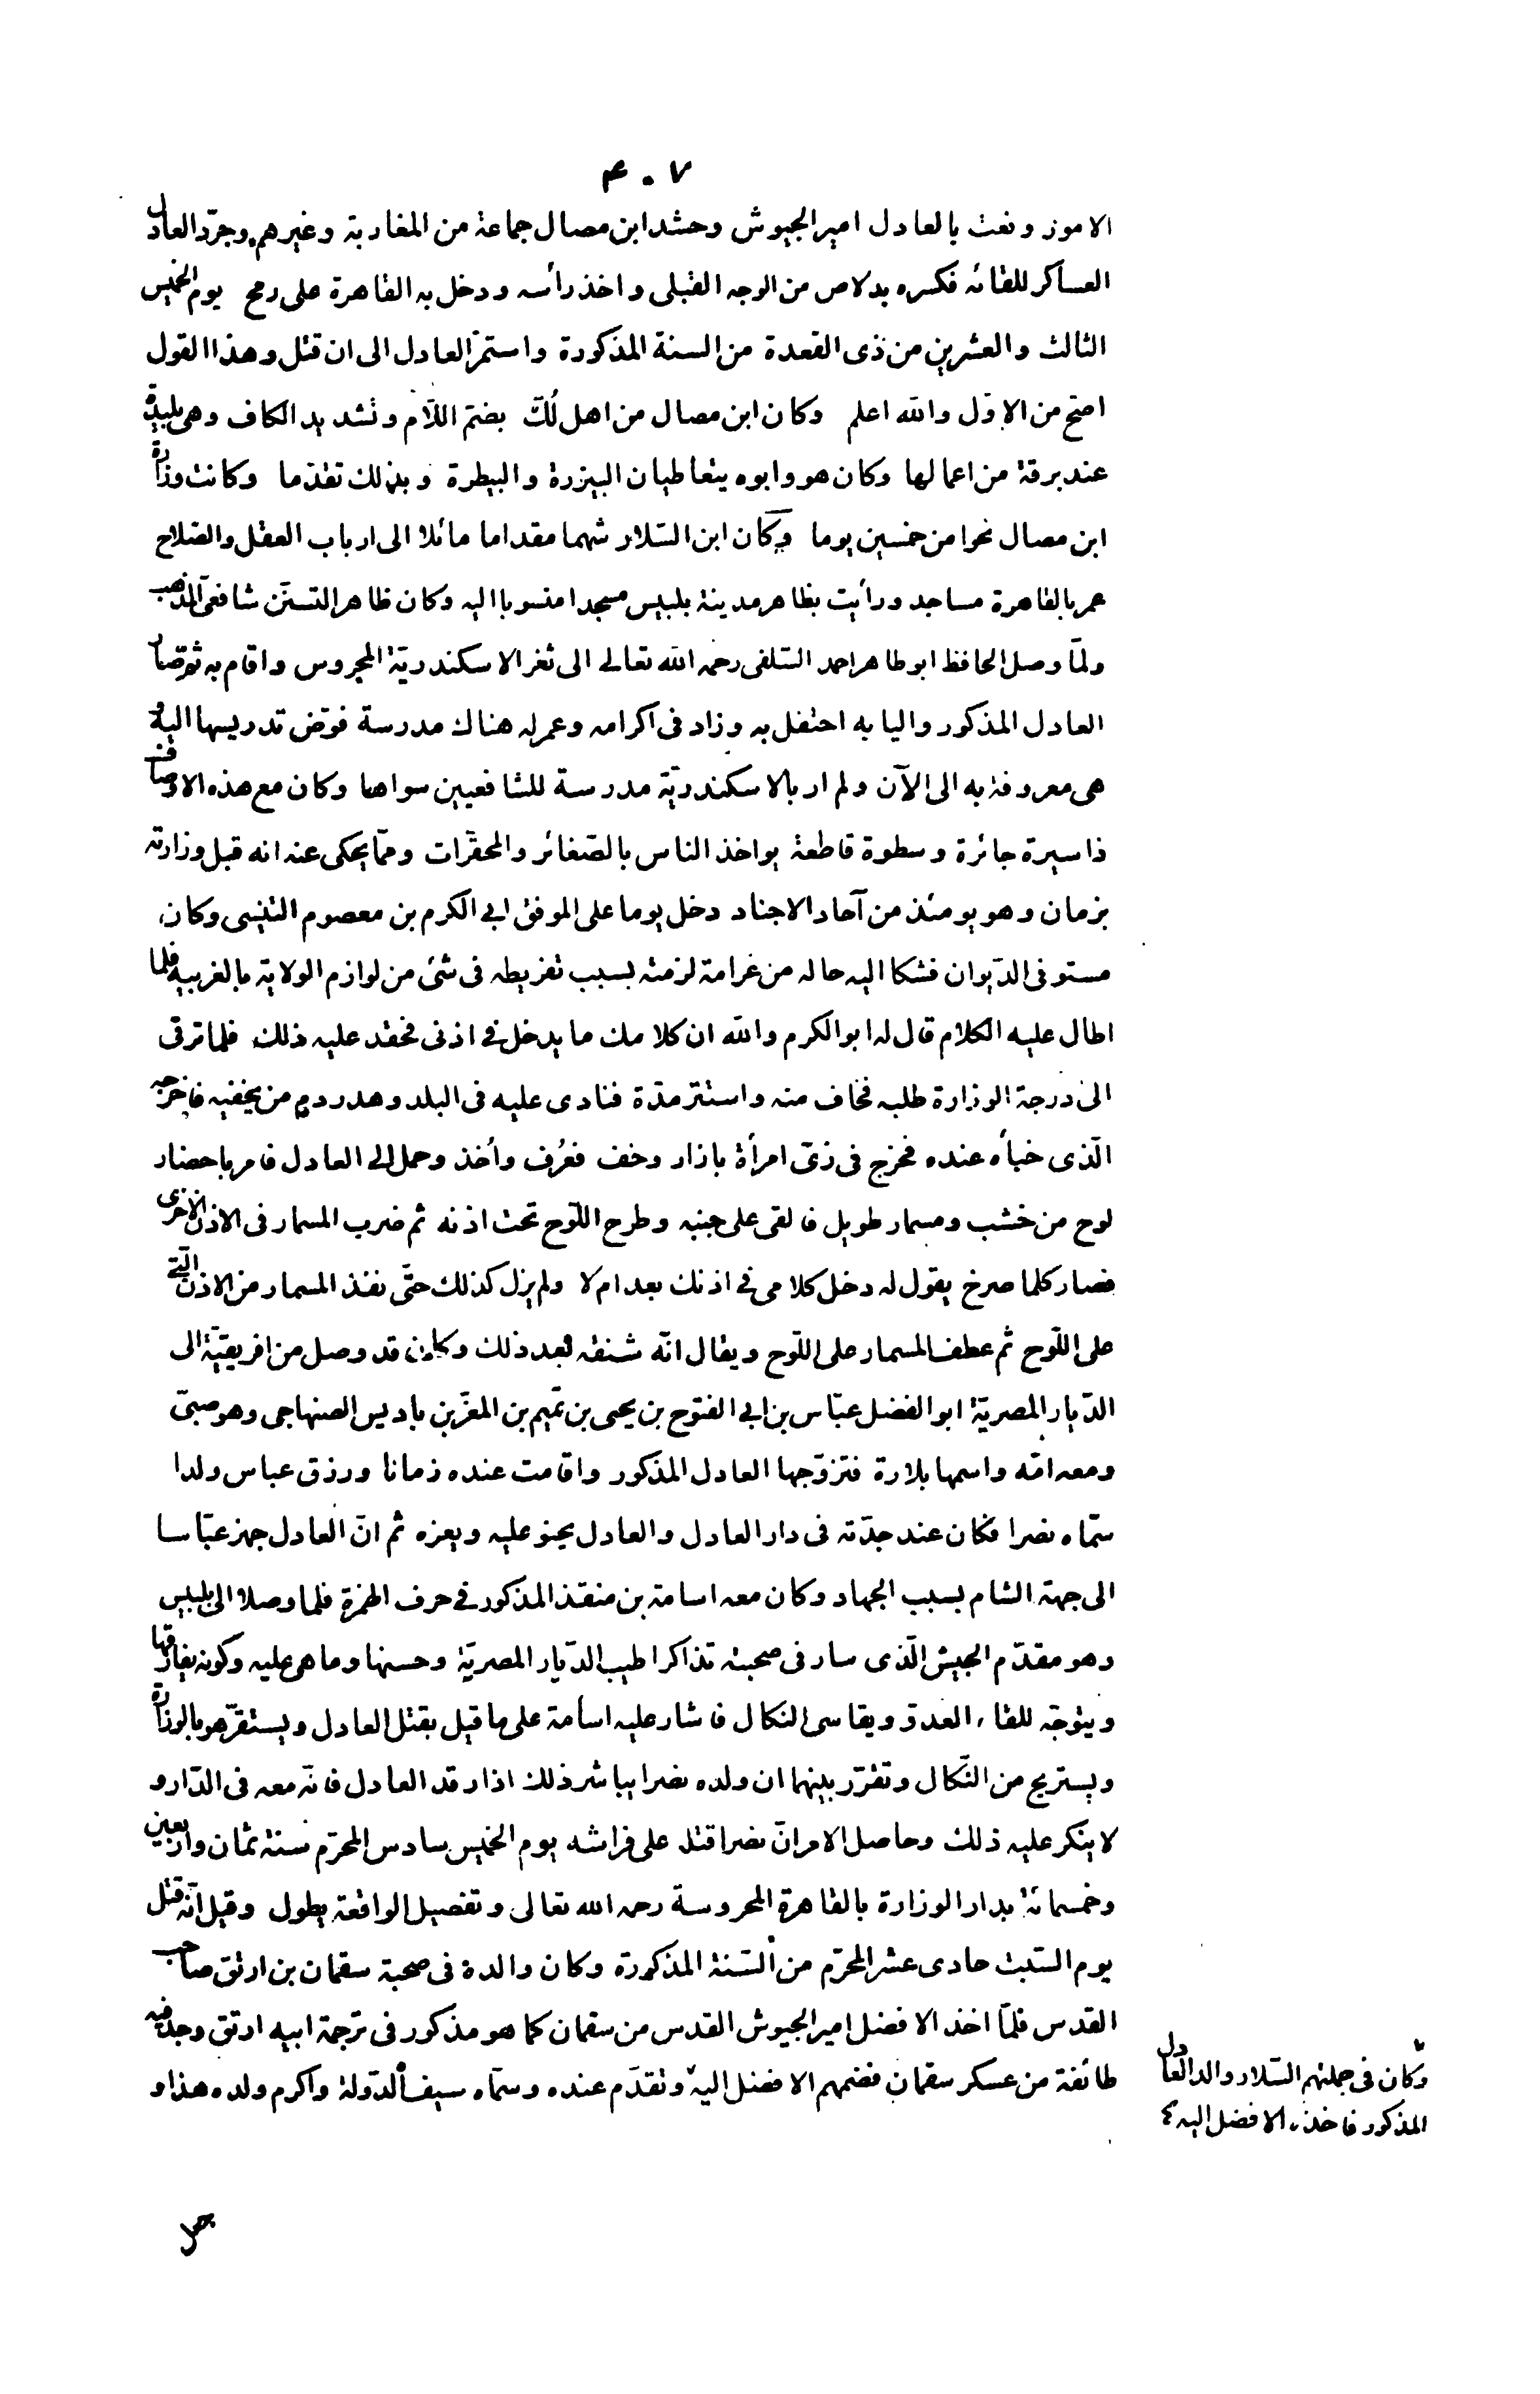 ٤٠٧
الامور ونعت بالعادل امير الجيوش وحشد ابن مصال جماعة من المغاربة وغيرهم وجرّد العادل
العساكر للقائه فكسره بدلاص من الوجه القبلى واخذ رأسه ودخل به القاهرة على رمح يوم الخميس
الثالث والعشرين من ذى القعدة من السنة المذكورة واستمرّ العادل الى ان قتل وهذا القول
اصحّ من الاوّل والله اعلم وكان ابن مصال من اهل لُكّ بضمّ اللّام وتشديد الكاف وهى بليدة
عند برقة من اعمالها وكان هو وابوه يتعاطيان البيزرة والبيطرة وبذلك تقدّما وكانت وزارة
ابن مصال نحوا من خمسين يوما وكان ابن السّلار شهما مقداما مائلا الى ارباب العقل والصّلاح
عمر بالقاهرة مساجد ورأيت بظاهر مدينة بلبيس مسجدا منسوبا اليه وكان ظاهر التسنّن شافعىّ المذهب
ولمّا وصل الحافظ ابو طاهر احمد السّلفى رحمه الله تعالى الى ثغر الاسكندريّة المحروس واقام به ثم صار
العادل المذكور واليا به احتفل به وزاد فى اكرامه وعمر له هناك مدرسة فوّض تدريسها اليه و
هى معروفة به الى الآن ولم ار بالاسكندريّة مدرسة للشافعيين سواها وكان مع هذه الاوصاف
ذا سيرة جائرة وسطوة قاطعة يواخذ الناس بالصّغائر والمحقّرات وممّا يحكى عنه انه قبل وزارته
بزمان وهو يومئذ من آحاد الاجناد دخل يوما على الموفق ابى الكرم بن معصوم التنيسى وكان
مستوفى الدّيوان فشكا اليه حاله من غرامة لزمته بسبب تفريطه فى شئ من لوازم الولاية بالغربيه فلما
اطال عليه الكلام قال له ابو الكرم والله ان كلامك ما يدخل فى اذنى فحقد عليه ذلك فلما ترقى
الى درجة الوزارة طلبه فخاف منه واستتر مدّة فنادى عليه فى البلد وهدر دم من يخفيه فاخرجه
الّذى خبأه عنده فخرج فى زىّ امرأة بازار وخف فعُرف واُخذ وحمل الى العادل فامر باحضار
لوح من خشب ومسمار طويل فالقى على جنبه وطرح اللّوح تحت اذنه ثم ضرب المسمار فى الاذن الاخرى
فصار كلما صرخ يقول له دخل كلامى فى اذنك بعد ام لا ولم يزل كذلك حتّى نفذ المسمار من الاذن الّتى
على اللّوح ثم عطف المسمار على اللّوح ويقال انّه شنقه بعد ذلك وكان قد وصل من افريقيّة الى
الدّيار المصريّة ابو الفضل عبّاس بن ابى الفتوح بن يحيى بن تميم بن المعزّ بن باديس الصنهاجى وهو صبىّ
ومعه امّه واسمها بلارة فتزوّجها العادل المذكور واقامت عنده زمانا ورزق عباس ولدا
سمّاه نصرا فكان عند جدّته فى دار العادل والعادل يحنو عليه ويعزه ثم انّ العادل جهز عبّاسا
الى جهة الشام بسبب الجهاد وكان معه اسامة بن منقذ المذكور فى حرف الهمزة فلما وصلا الى بلبيس
وهو مقدّم الجيش الّذى سار فى صحبته تذاكرا طيب الدّيار المصريّة وحسنها وما هى عليه وكونه يفارقها
ويتوجّه للقاء العدوّ ويقاسى النكال فاشار عليه اسامة على ما قيل بقتل العادل ويستقرّ هو بالوزارة
ويستريح من النّكال وتقرّر بينهما ان ولده نصرا يباشر ذلك اذا رقد العادل فانّه معه فى الدّار و
لا ينكر عليه ذلك وحاصل الامر انّ نصرا قتله على فراشه يوم الخميس سادس المحرّم سنة ثمان واربعين
وخمسمائة بدار الوزارة بالقاهرة المحروسة رحمه الله تعالى وتفصيل الواقعة يطول وقيل انّه قتل
يوم السّبت حادى عشر المحرّم من السّنة المذكورة وكان والده فى صحبة سقمان بن ارتق صاحب
القدس فلمّا اخذ الافضل امير الجيوش القدس من سقمان كما هو مذكور فى ترجمة ابيه ارتق وجد فيه
طائفة من عسكر سقمان فضمهم الافضل اليه وتقدّم عنده وسمّاه سيف الدّولة واكرم ولده هذا و
وكان فى جملتهم السّلار والد العادل
المذكور فاخذه الافضل اليه
جعل